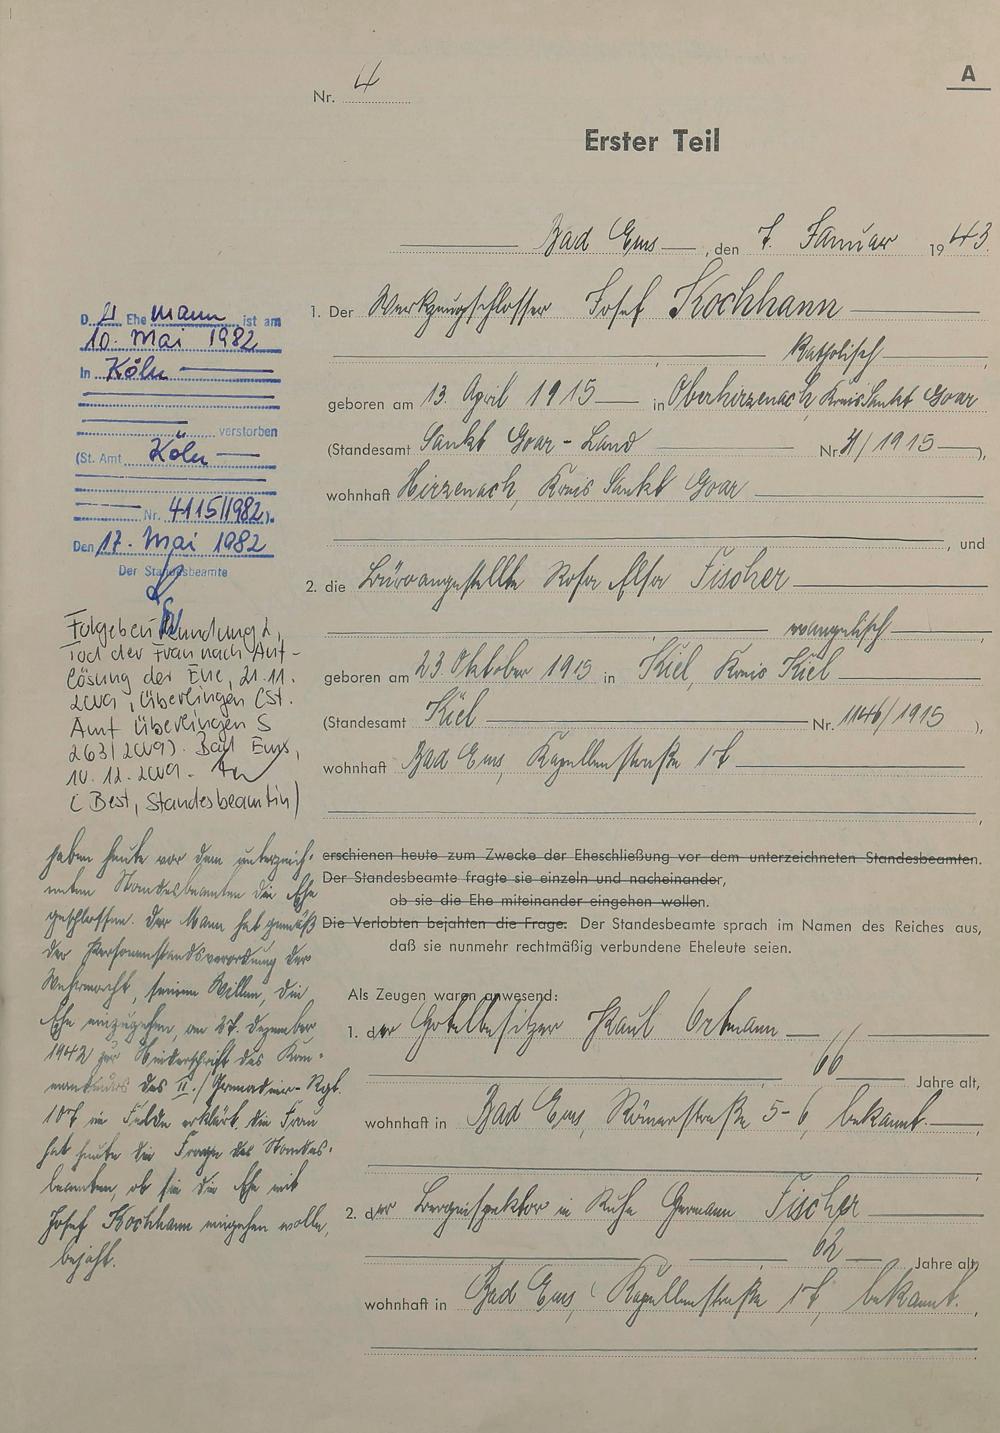 A
Nr. 4
Erster Teil
Bad Ems, den 7. Januar 1943.
1. Der Werkzeugschlosser Josef Kochhann
katholisch,
geboren am 13. April 1915 in Oberhirzenach, Kreis Sankt Goar
(Standesamt Sankt Goar-Land Nr. 4/1915),
wohnhaft Hirzenach, Kreis Sankt Goar
, und
2. die Büroangestellte Rosa Elsa Fischer
evangelisch,
geboren am 23. Oktober 1915 in Kiel, Kreis Kiel
(Standesamt Kiel Nr. 1146/1915),
wohnhaft Bad Ems, Kapellenstraße 17
,
erschienen heute zum Zwecke der Eheschließung vor dem unterzeichneten Standesbeamten.
Der Standesbeamte fragte sie einzeln und nacheinander,
ob sie die Ehe miteinander eingehen wollen.
Die Verlobten bejahten die Frage. Der Standesbeamte sprach im Namen des Reiches aus,
daß sie nunmehr rechtmäßig verbundene Eheleute seien.
Als Zeugen waren anwesend:
1. der Hotelbesitzer Paul Ortmann
66 Jahre alt,
wohnhaft in Bad Ems, Römerstraße 5-6, bekannt.
2. der Berginspektor in Ruhe Hermann Fischer
62 Jahre alt,
wohnhaft in Bad Ems, Kapellenstraße 17, bekannt.
D. Ehemann ist am
10. Mai 1982
In Köln
verstorben
(St. Amt Köln
Nr. 4115/1982).
Den 17. Mai 1982
Der Standesbeamte
Folgebeurkundung 2,
Tod der Frau nach Auf-
lösung der Ehe, 21.11.
2009, Überlingen (St.
Amt Überlingen S
263/2009). Bad Ems,
10.12.2009.
(Best, Standesbeamtin)
haben heute vor dem unterzeich-
neten Standesbeamten die Ehe
geschlossen. Der Mann hat gemäß
der Personenstandsverordnung der
Wehrmacht, seinen Willen, die
Ehe einzugehen, am 27. Dezember
1942 zur Niederschrift des Kom-
mandeurs des II./Grenadier-Rgt.
107 im Felde erklärt, die Frau
hat heute die Frage des Standes-
beamten, ob sie die Ehe mit
Josef Kochhann eingehen wolle,
bejaht.